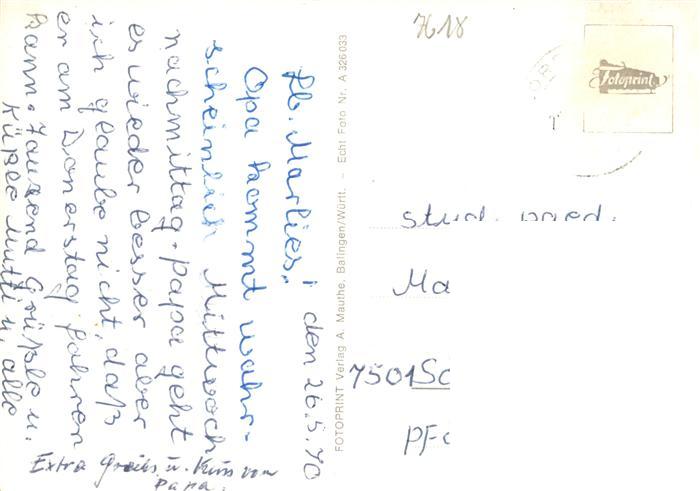 i den 26.5.70
Lb. Marlies!
Opa kommt wahr-
scheinlich Mittwoch
nachmittag. Papa geht
es wieder besser aber
ich glaube nicht, daß
er am Donerstag fahren
kann. Tausend Grüße u.
Küße Mutti u. alle
Extra Gruß u. Kuss von
Papa.
FOTOPRINT Verlag A. Mauthe, Balingen/Württ. – Echt Foto Nr. A 326 033
7618
Fotoprint
stud. med.
Ma
7501 Sc
PFC